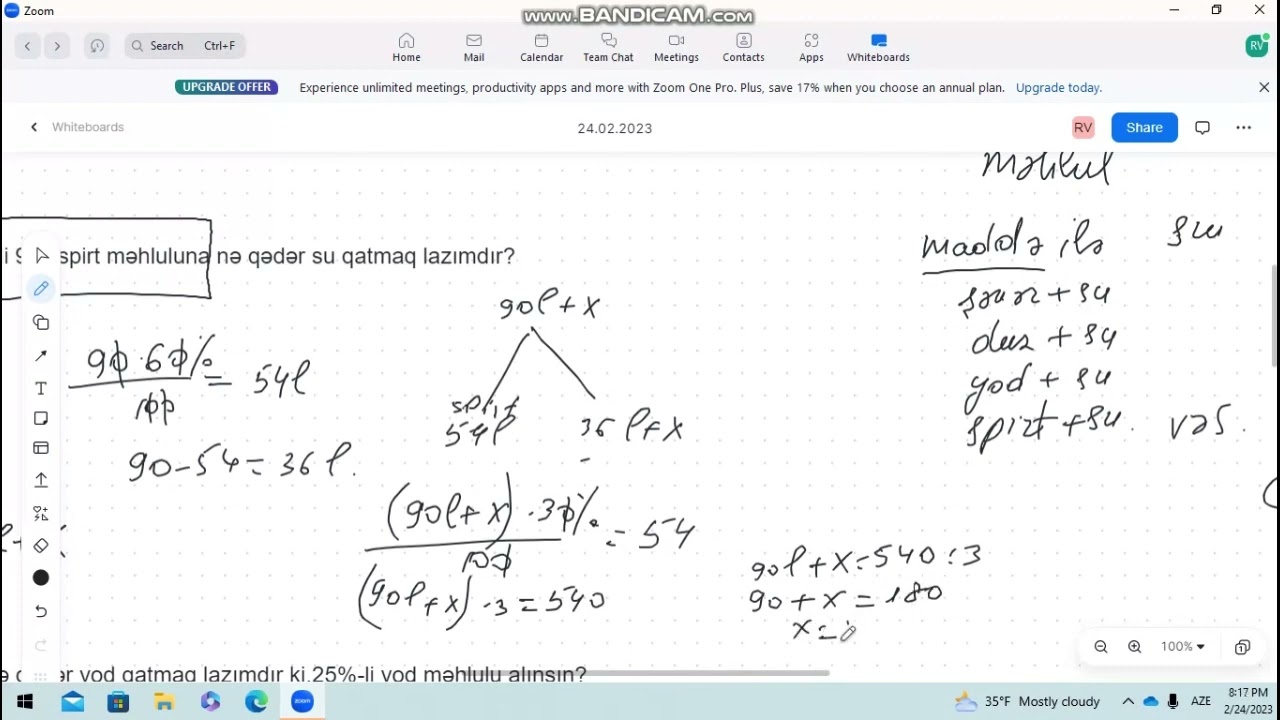 Zoom
www.BANDICAM.com
Search Ctrl+F
Home Mail Calendar Team Chat Meetings Contacts Apps Whiteboards
RV
UPGRADE OFFER Experience unlimited meetings, productivity apps and more with Zoom One Pro. Plus, save 17% when you choose an annual plan. Upgrade today.
Whiteboards
24.02.2023
RV Share
Məhlul
spirt məhluluna nə qədər su qatmaq lazımdır?
maddə ilə su
90l + x
şəkər + su
duz + su
yod + su
spirt + su.
90 · 60% / 100 = 54l
spirt
54l 36 l + x
90 - 54 = 36 l.
(90l + x) · 30% / 100 = 54
(90l + x) · 3 = 540
90l + x = 540 : 3
90 + x = 180
x =
100%
yod qatmaq lazımdır ki,25%-li yod məhlulu alınsın?
zoom
35°F Mostly cloudy
AZE
8:17 PM
2/24/2023